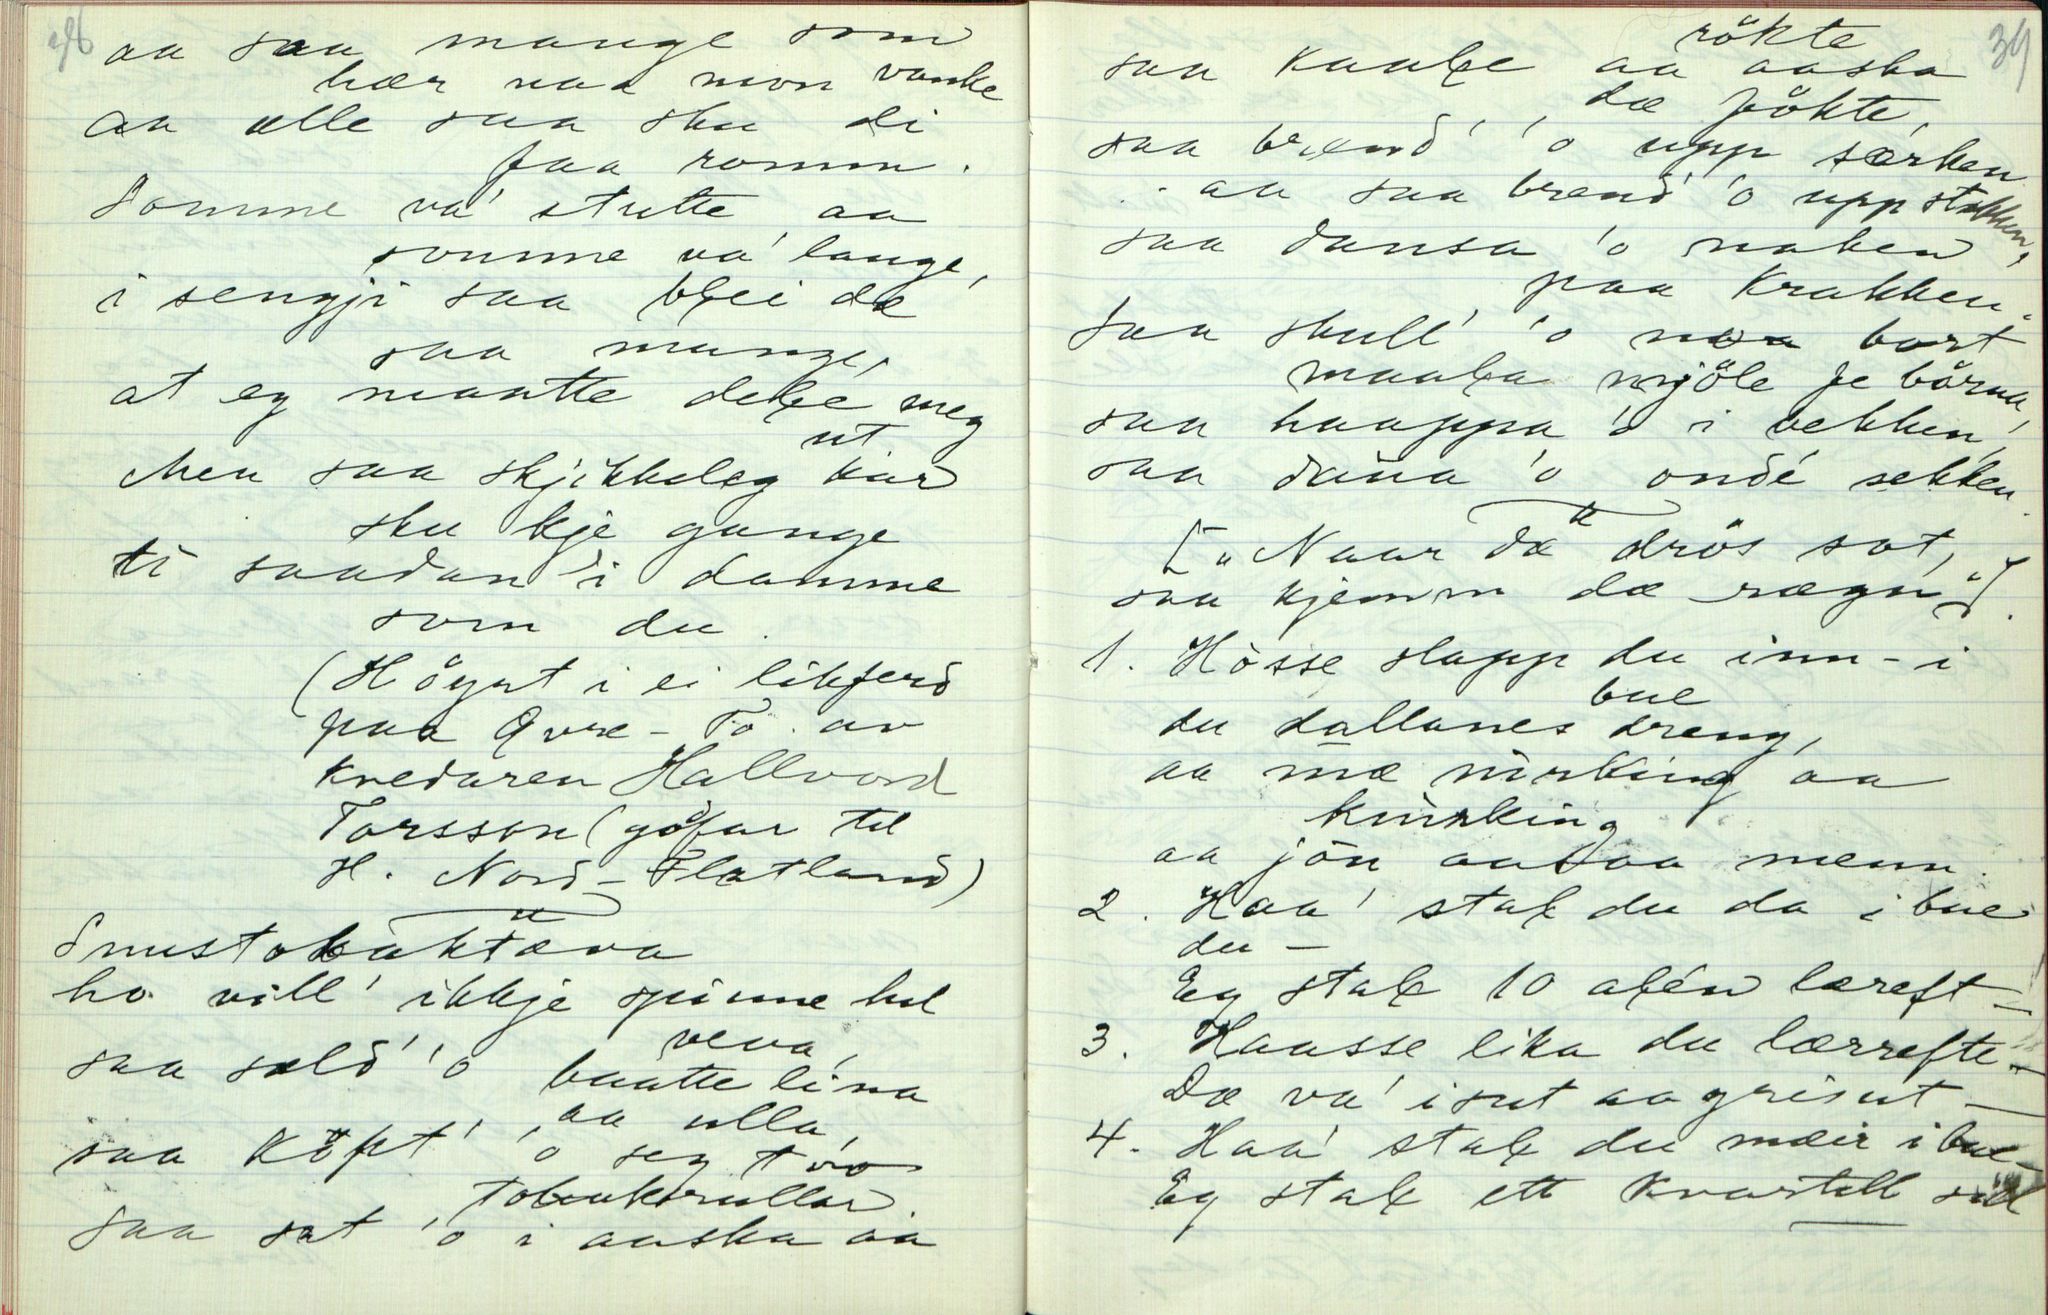 aa saa mange som
hær naa mon vanke
aa alle saa sku di
faa romm.
Somme va' stutte aa
somme va' lange,
i sengji saa blei dæ
saa mange,
at eg maatte dekje' meg
ut
Men saa skjikkeleg kar
sku kje gange
ti saadan i damme
som du.
(Höyrt i ei likferd
paa Øvre-Bö av
kvedaren Hallvord
Torsson (gofar til
H. Nord-Flatland)
Snustobaktæva
ho vill' ikkje spinne hel
veva,
saa sæld' 'o baatte lina
aa ulla,
saa köpt' 'o seg tvo
tobaksrullar.
saa sat 'o i aaska aa
39
saa kaalt aa aaska
rökte
dæ fökte,
saa brænd' 'o upp særken
aa saa brend' 'o upp stakken,
saa dansa 'o naken
paa krakken.
Saa skull' 'o naa bort
maala mjöle fe börna,
saa haappa 'o i bekken,
saa daana 'o onde' sekken.
[„Naar dæ drös sot,
saa kjemm dæ rægn"].
1. Hösse slapp du inn-i
bue
du dallanes dreng,
aa mæ nirking aa
knirking
aa jön aabaa menn.
2. Haa' stal du da i bue
du —
Eg stal 10 alen læreft —
3. Haasse lika du lærrefte —
Dæ va' isut aa grisut —
4. Haa' stal du mæir i bue —
Eg stal ett kvartell sild